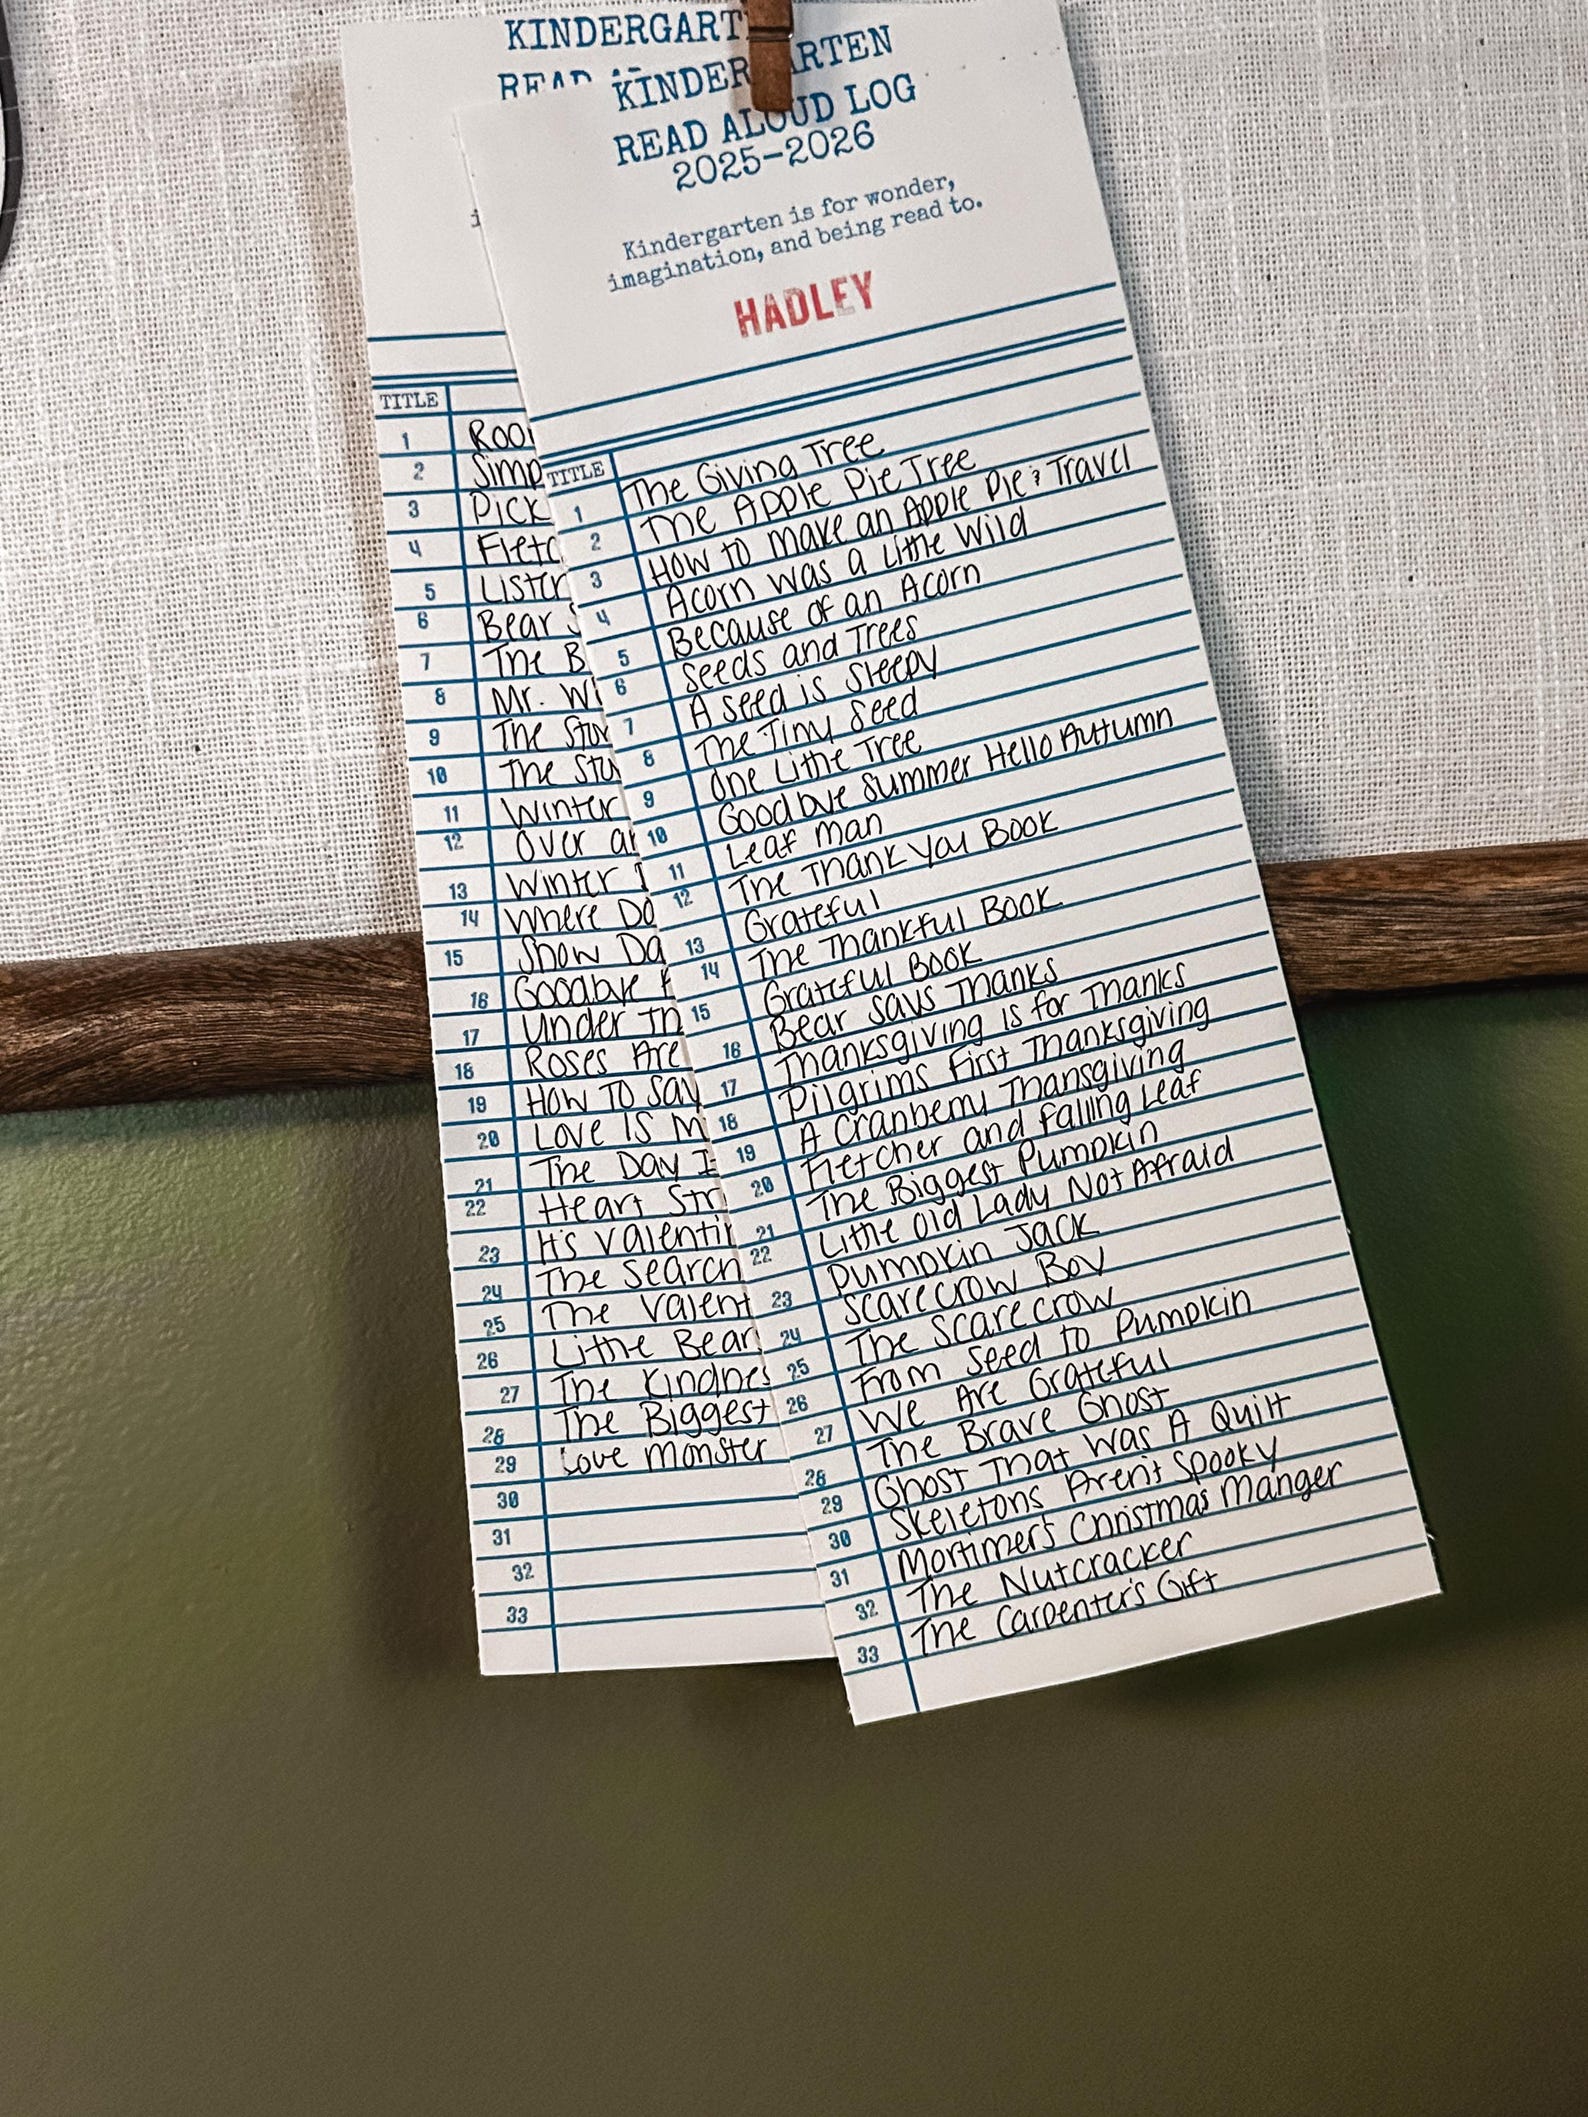 KINDERGARTEN
READ ALOUD LOG
2025-2026
Kindergarten is for wonder,
imagination, and being read to.
HADLEY
TITLE
1 The Giving Tree
2 The Apple Pie Tree
3 How to make an Apple Pie & Travel
4 Acorn was a Little Wild
5 Because of an Acorn
6 Seeds and Trees
7 A seed is sleepy
8 The Tiny Seed
9 One Little Tree
10 Goodbye Summer Hello Autumn
11 Leaf Man
12 The Thank You Book
13 Grateful
14 The Thankful Book
15 Grateful Book
16 Bear Says Thanks
17 Thanksgiving is for Thanks
18 Pilgrims First Thanksgiving
19 A Cranberry Thansgiving
20 Fletcher and Falling Leaf
21 The Biggest Pumpkin
22 Little Old Lady Not Afraid
23 Pumpkin Jack
24 Scarecrow Boy
25 The Scarecrow
26 From Seed to Pumpkin
27 We Are Grateful
28 The Brave Ghost
29 Ghost That Was A Quilt
30 Skeletons Aren't Spooky
31 Mortimer's Christmas Manger
32 The Nutcracker
33 The Carpenter's Gift
KINDERGART
READ
TITLE
1
2 Simp
3 Pick
4 Fletc
5 Listen
6 Bear S
7 The B
8 Mr. Wi
9 The
10 The
11 Winter
12 Over an
13 Winter
14 Where Do
15 Snow Da
16 Goodbye
17 Under Th
18 Roses Are
19 How To Say
20 Love Is M
21 The Day I
22 Heart Str
23 It's Valentin
24 The Search
25 The Valent
26 Little Bear
27 The Kindnes
28 The Biggest
29 Love Monster
30
31
32
33